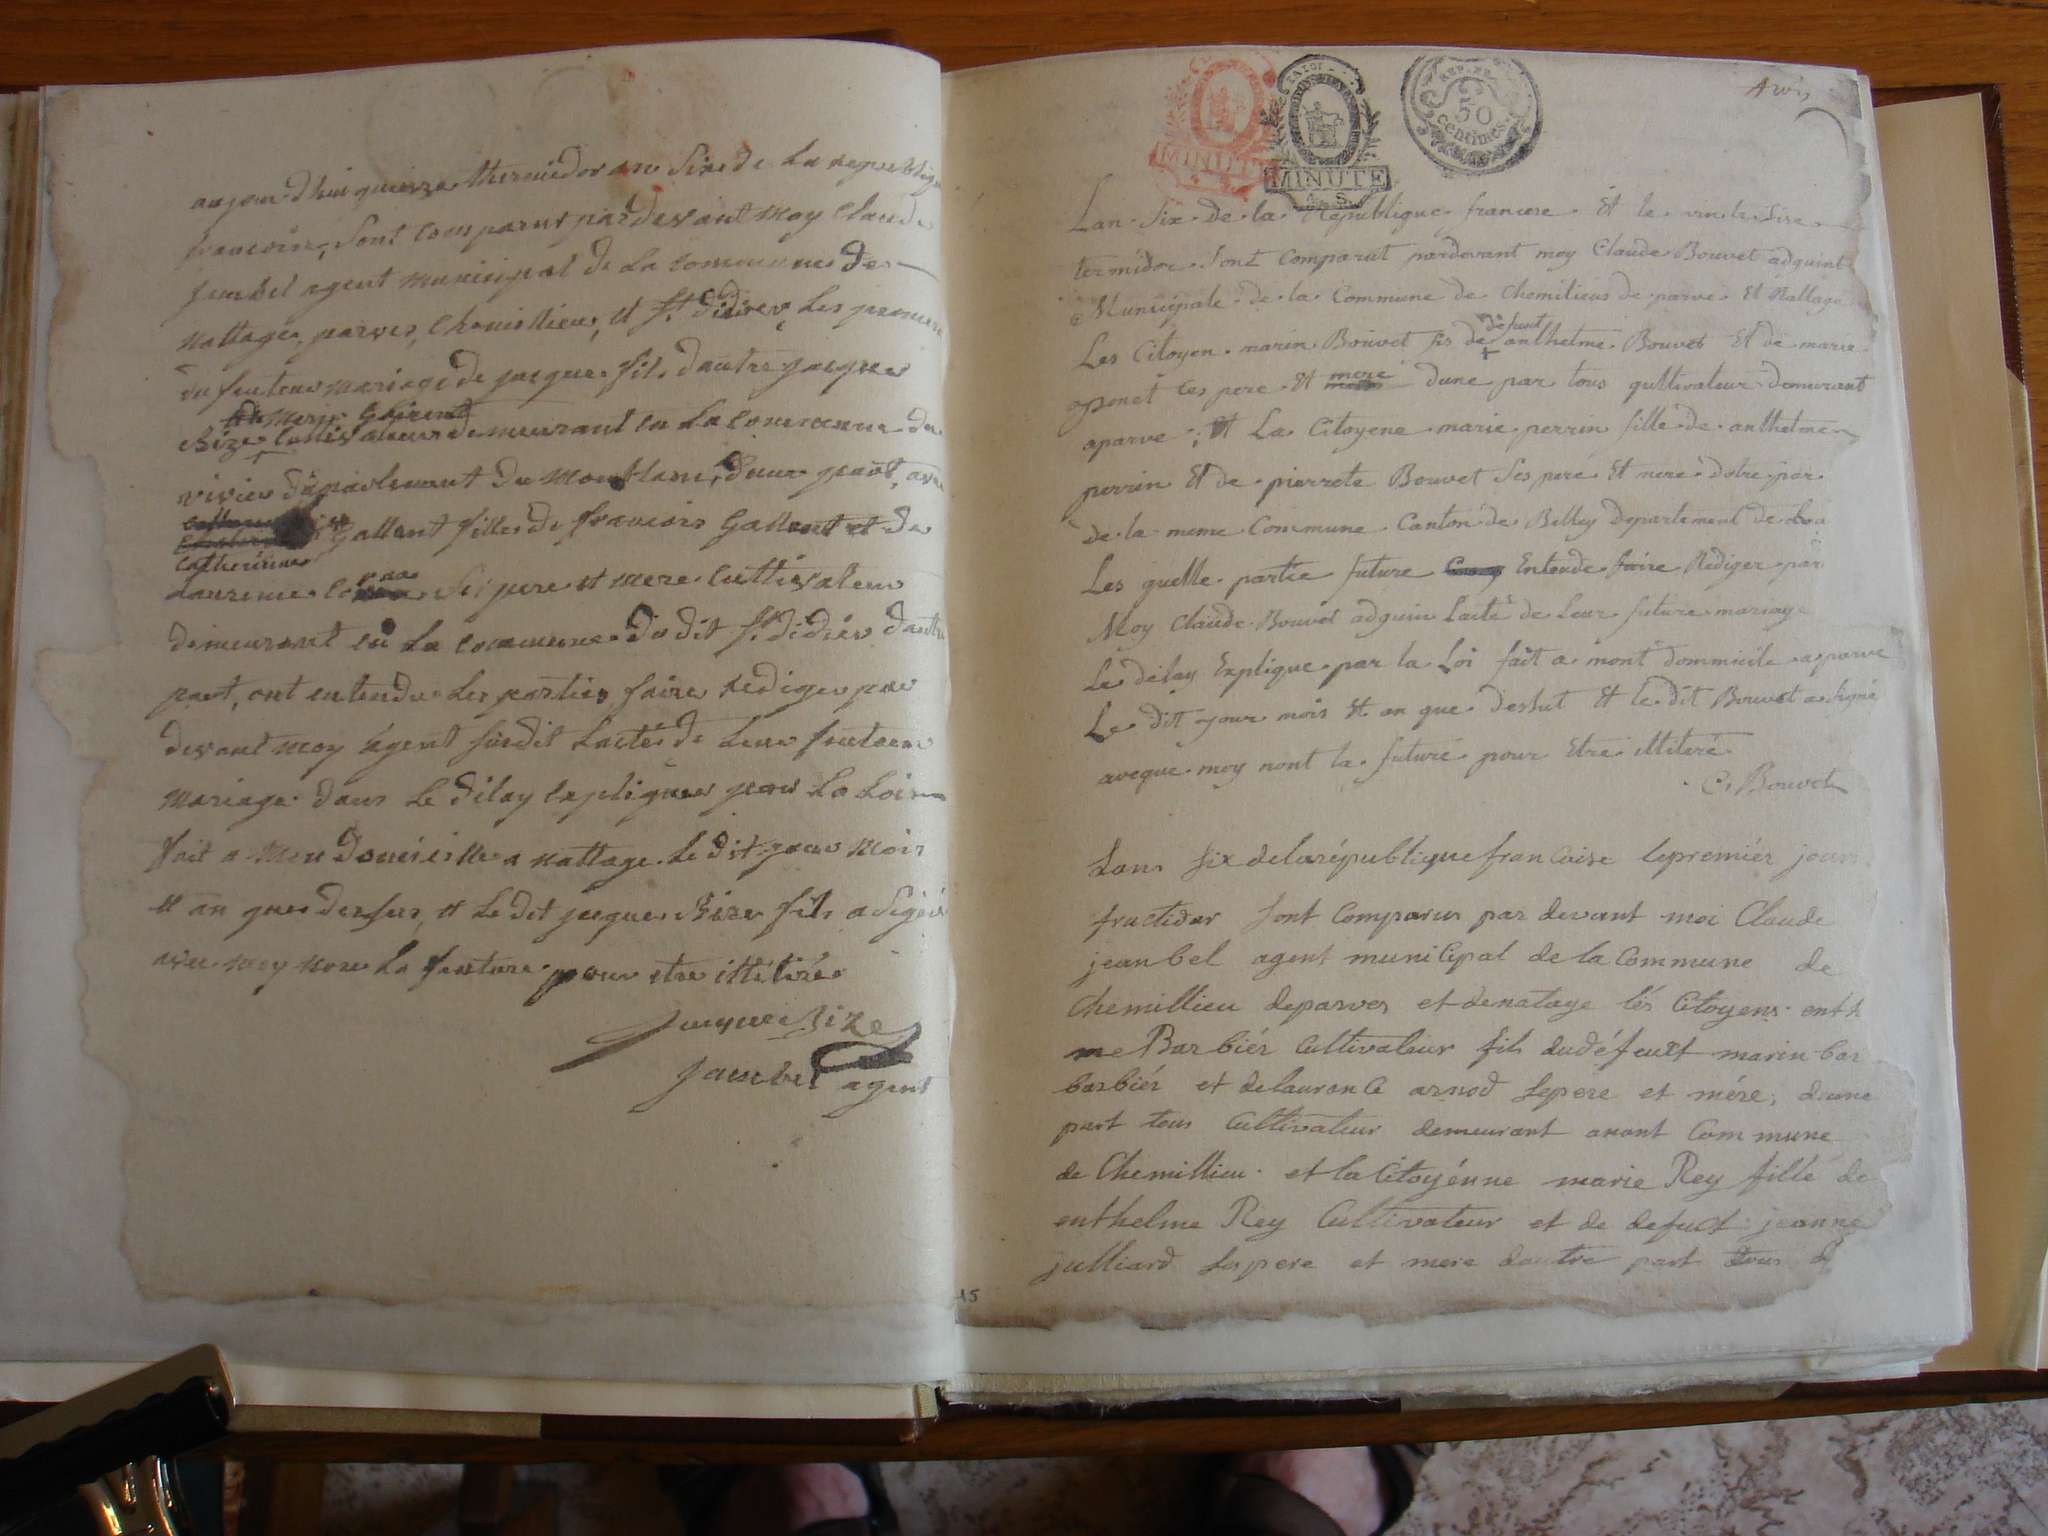 aujourdhui quinze thermidor an Sixe de La republique
francoise, sont comparut pardevant moy Claude
jeanbel agent municipal de La commune de
nattage, parves, chemillieu, et St didier, Les promesse
du feuteur mariage de jacque fils dautre jacque
et de marie
Bize Cultivateur demeurant en La commune de
departement du montblanc, dune part, avec
Catherinne Gallent fille de francois Gallent et de
Laurence ses pere et mere cultivateur
demeurant en La commune du dit St didier dautre
part, ont entendu Les parties faire rediger par
devant moy agent susdit Lacte de Leur feuteur
mariage dans Le delay expliquer par La Loi
fait a mon domicille a nattage Le dit jour mois
et an que dessus, et Le dit jacque Bize fils a signé
avec moy non La feuture pour etre illetirée
jacque Bize
jeanbel agent
MINUTE
MINUTE
50
centimes
Lan Six de la Republique francere Et le vint Sixe
termidor Sont Comparut pardevant moy Claude Bouvet adguint
Municipale de la Commune de Chemilieus de parve Et Nattage
Les Citoyen marin Bouvet fis de defunt anthelme Bouvet Et de marie
ses pere Et mere dune par tous qultivateur demurant
aparve ; Et La Citoyene marie perrin fille de anthelme
perrin Et de pierrete Bouvet Ses pere Et mere dotre par
de la meme Commune Canton de Belley departement de
Les quelle partie future Entende faire Rediger par
Moy Claude Bouvet adguin Lacte de Leur future mariage
Le delay Explique par la Loi fait a mont dommicile a parve
Le dit jour mois Et an que dessut Et le dit Bouvet a signé
aveque moy nont la future pour Etre illiteré
C. Bouvet
Lans six delarépublique francaise lepremiér jour
fructidor sont Comparus par devant moi Claude
jeanbel agent municipal de la Commune de
Chemillieu deparves et denatage lés Citoyens enth
me Barbiér Cultivateur fils dudéfeuxt marin bar
barbiér et delaurence arnod sepere et mére, dune
part tous Cultivateur demeurant anant Commune
de Chemillieu et la Citoyénne marie Rey fille de
enthelme Rey Cultivateur et de defuct jeanne
julliard sespere et mere dautre part tous d
15